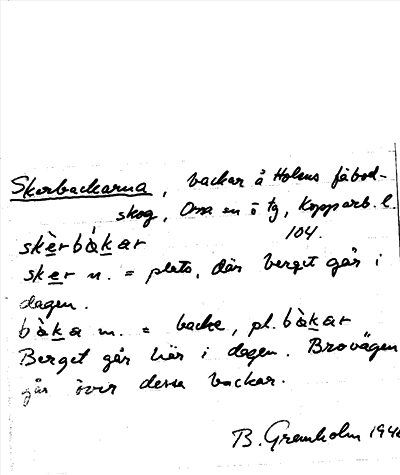 Skerbackarna, backar å Holens fäbod-
skog, Orsa en i tg, Kopparb. l.
104.
skèrbàkar
sker n. = plats, där berget går i
dagen.
bàka m. = backe, pl. bàkar
Berget går här i dagen. Brovägen
går över dessa backar.
B. Granholm 194